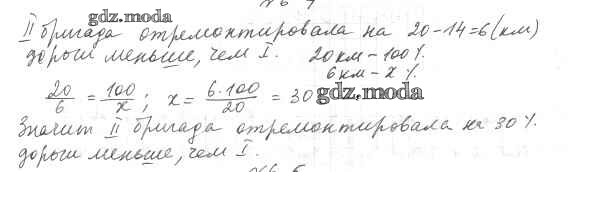 gdz.moda
II бригада отремонтировала на 20-14=6(км)
дороги меньше, чем I. 20 км - 100 %.
6 км - x %.
20/6 = 100/x ; x = 6·100/20 = 30
gdz.moda
Значит II бригада отремонтировала на 30 %.
дороги меньше, чем I.